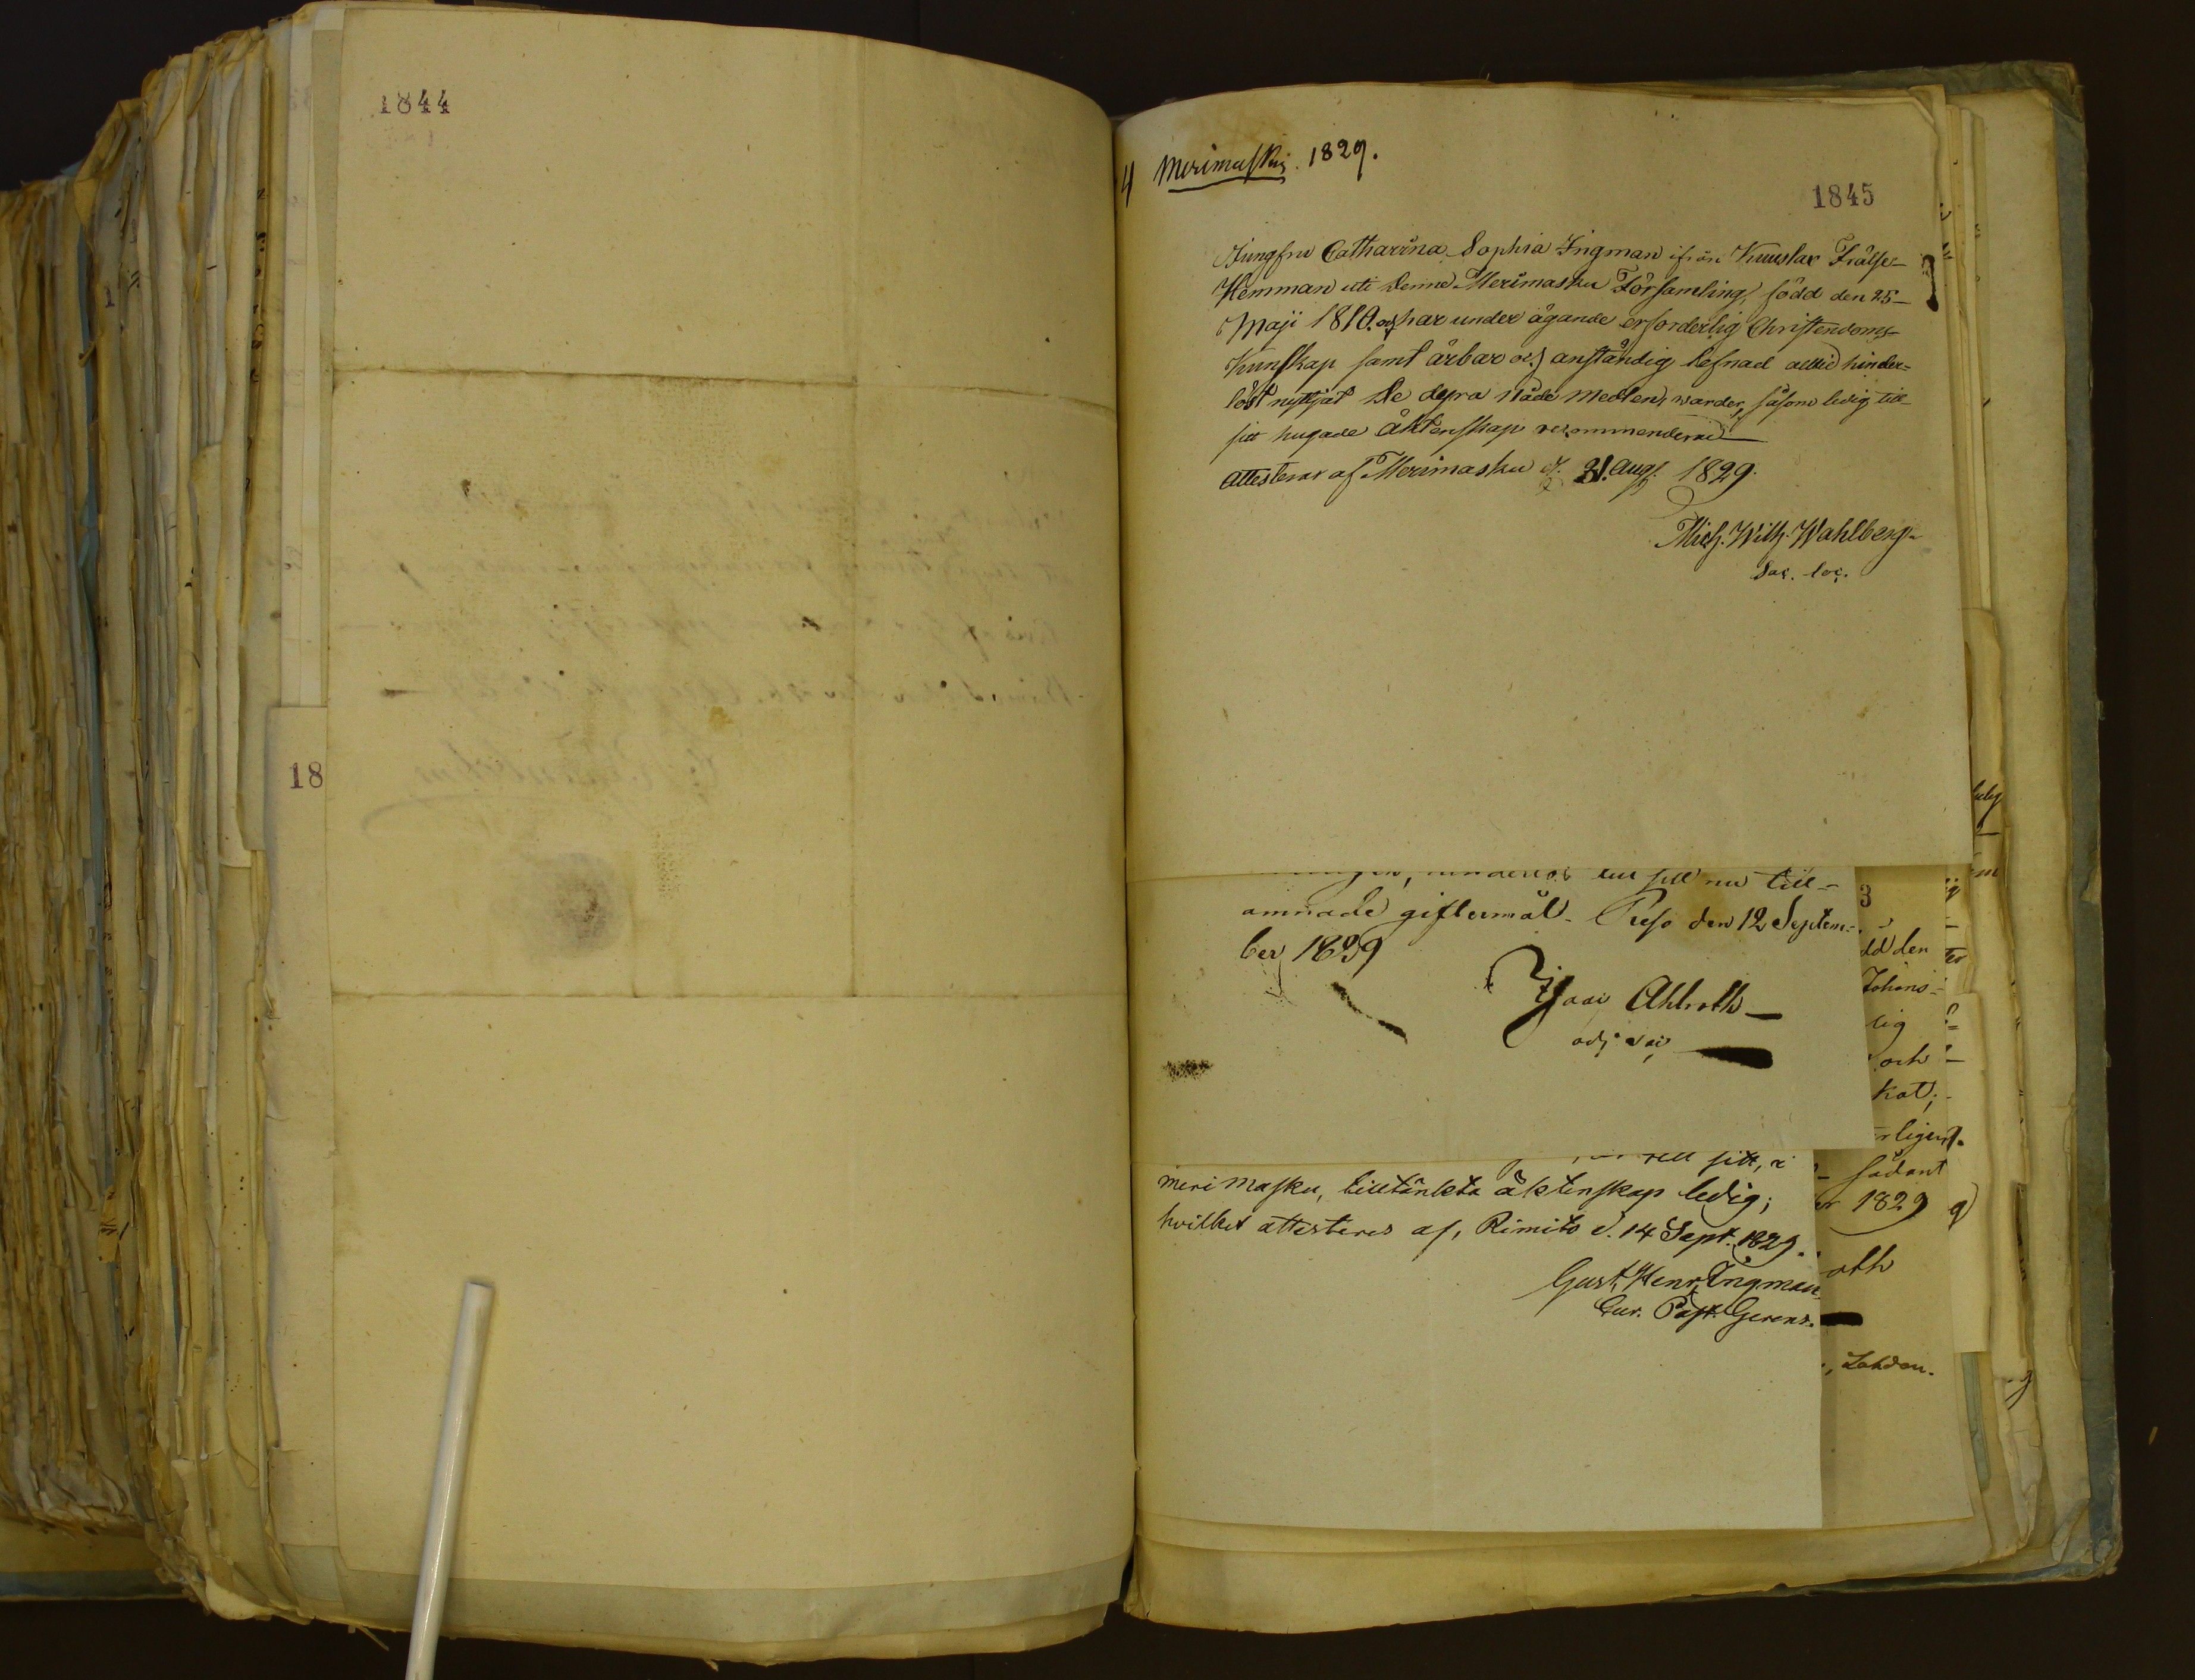 1844
18
4 Merimasku. 1829.
1845
Jungfru Catharina Sophia Ingman ifrån Kuuslax Frälse-
Hemman uti denne Merimasku Församling, född den 25
Maji 1810. och har under ägande erforderlig Christendoms-
Kunskap samt ärbar och anständig lefnad alltid hinder-
löst nyttjat de dyra nåde medlen, warder, såsom ledig till
sitt hugade äktenskap recommenderad
Attesterar af Merimasku d. 31. Aug. 1829.
Mich. Wilh. Wahlberg
Sac. loc.
hinderlös till sitt nu till-
ämnade giftermål. Reso den 12 Septem-
ber 1829
Isaac Ahlroth
adj
till sitt, i
merimasku, tilltänkta äktenskap ledig;
hvilket attesteres af, Rimito d. 14 Sept. 1829.
Gust. Henr. Ingman
Cur. Past. Gerens.
3
dd den
Johans-
lig
och
kat;
rligen
sådant
er 1829
oth
Lahdon.